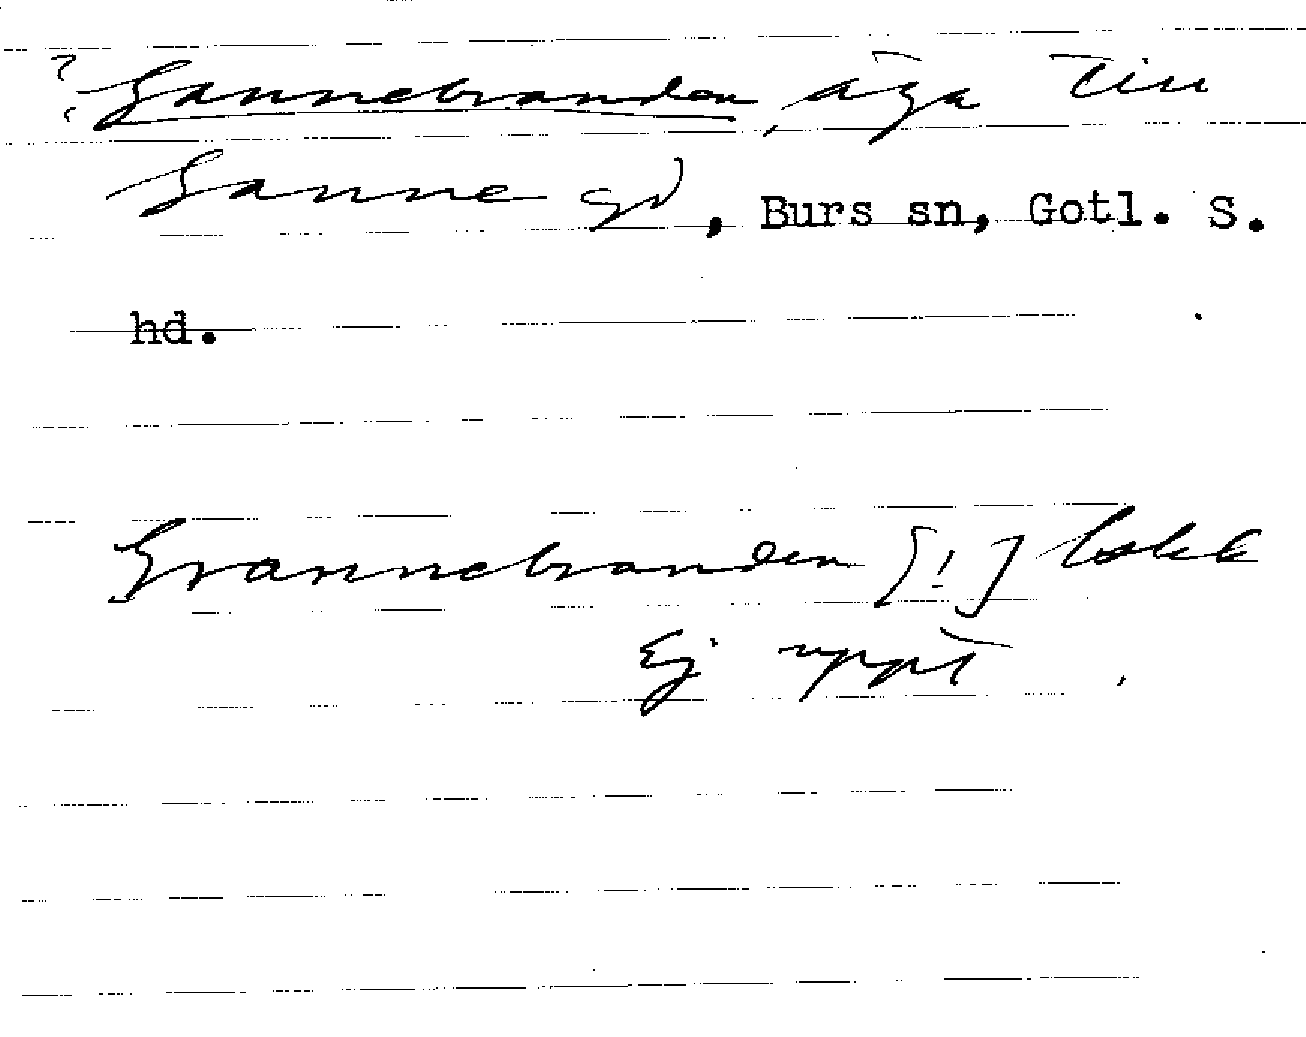 ? Sannebranden, äga till
Sanne gd, Burs sn, Gotl. S.
hd.
Grannebranden [!]
Ej uppt